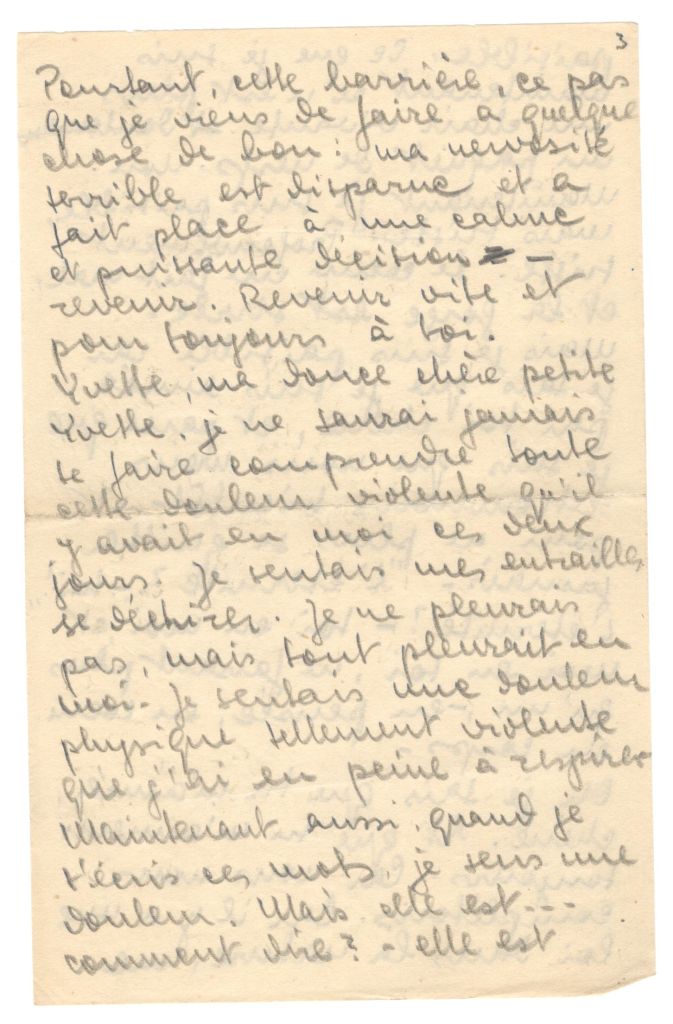 3
Pourtant, cette barrière, ce pas
que je viens de faire a quelque
chose de bon : ma nervosité
terrible est disparue et a
fait place à une calme
et puissante décision –
revenir. Revenir vite et
pour toujours à toi.
Yvette, ma douce chère petite
Yvette, je ne saurai jamais
te faire comprendre toute
cette douleur violente qu'il
y avait en moi ces deux
jours. Je sentais mes entrailles
se déchirer. Je ne pleurais
pas, mais tout pleurait en
moi. Je sentais une douleur
physique tellement violente
que j'ai eu peine à respirer
Maintenant aussi, quand je
t'écris ces mots, je sens une
douleur. Mais elle est ---
comment dire? - elle est